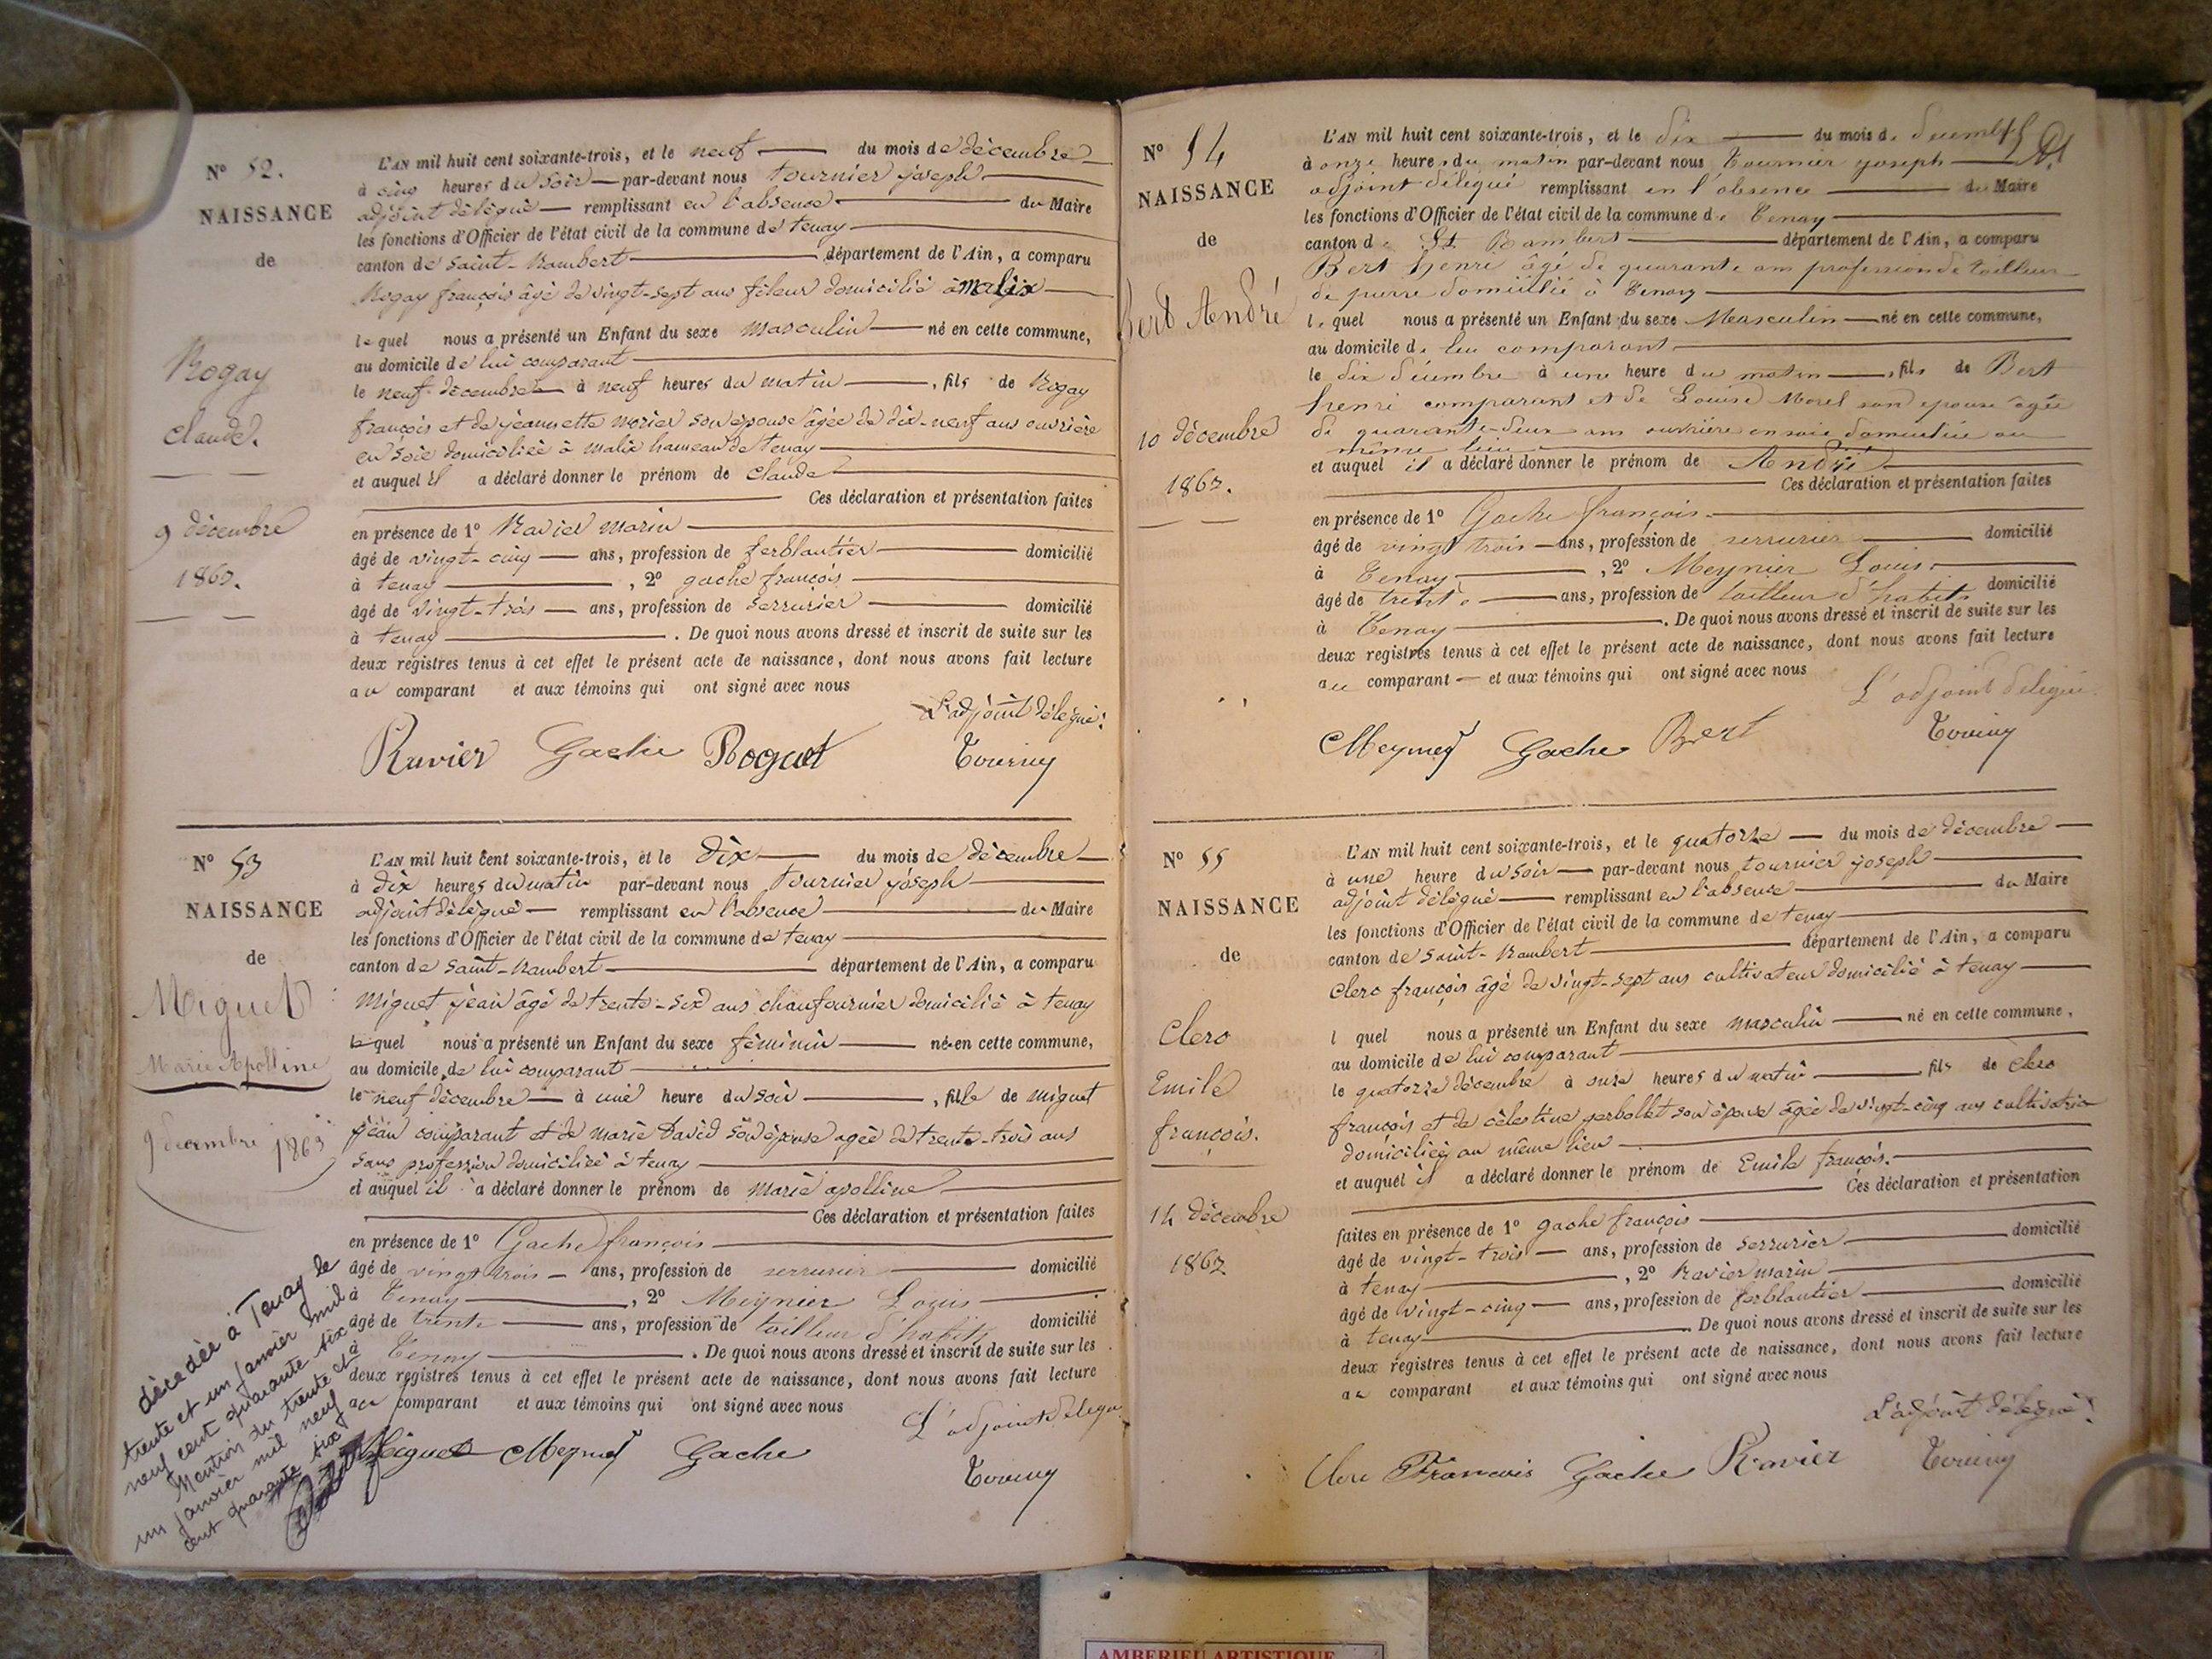 N° 52.
NAISSANCE
de
Rogay
claude.
9 décembre
1863.
L'AN mil huit cent soixante-trois, et le neuf du mois de décembre
à cinq heures du soir par-devant nous tournier joseph
adjoint délégué remplissant en l'absence du Maire
les fonctions d'Officier de l'état civil de la commune de tenay
canton de saint-Rambert département de l'Ain, a comparu
Rogay françois âgé de vingt-sept ans fileur domicilié à malix
lequel nous a présenté un Enfant du sexe masculin né en cette commune,
au domicile de lui comparant
le neuf décembre à neuf heures du matin, fils de Rogay
françois et de jeannette morier son épouse âgée de dix-neuf ans ouvrière
en soie domiciliée à malix hameau de tenay
et auquel il a déclaré donner le prénom de claude
Ces déclaration et présentation faites
en présence de 1° Ravier marin
âgé de vingt-cinq ans, profession de ferblantier domicilié
à tenay, 2° gache françois
âgé de vingt-trois ans, profession de serrurier domicilié
à tenay. De quoi nous avons dressé et inscrit de suite sur les
deux registres tenus à cet effet le présent acte de naissance, dont nous avons fait lecture
au comparant et aux témoins qui ont signé avec nous
L'adjoint délégué:
Ravier Gache Roguet Tourny
N° 53
NAISSANCE
de
Miguet
Marie Apolline
9 décembre 1863
décédée à Tenay le
trente et un janvier mil
neuf cent quarante six
Mention du trente et
un janvier mil neuf
cent quarante six
L'AN mil huit cent soixante-trois, et le dix du mois de décembre
à dix heures du matin par-devant nous tournier joseph
adjoint délégué remplissant en l'absence du Maire
les fonctions d'Officier de l'état civil de la commune de tenay
canton de saint-Rambert département de l'Ain, a comparu
Miguet jean âgé de trente-six ans chaufournier domicilié à tenay
lequel nous a présenté un Enfant du sexe féminin né en cette commune,
au domicile de lui comparant
le neuf décembre à une heure du soir, fille de miguet
jean comparant et de marie David son épouse agée de trente-trois ans
sans profession domiciliée à tenay
et auquel il a déclaré donner le prénom de marie apolline
Ces déclaration et présentation faites
en présence de 1° Gache françois
âgé de vingt trois ans, profession de serrurier domicilié
à Tenay, 2° Meynier Louis
âgé de trente ans, profession de tailleur d'habits domicilié
à Tenay. De quoi nous avons dressé et inscrit de suite sur les
deux registres tenus à cet effet le présent acte de naissance, dont nous avons fait lecture
au comparant et aux témoins qui ont signé avec nous
L'adjoint délégué
Miguet Meynier Gache Tourny
N° 54
NAISSANCE
de
Bert André
10 décembre
1863.
L'AN mil huit cent soixante-trois, et le dix du mois de décembre
à onze heures du matin par-devant nous Tournier joseph
adjoint délégué remplissant en l'absence du Maire
les fonctions d'Officier de l'état civil de la commune de Tenay
canton de St Rambert département de l'Ain, a comparu
Bert henri âgé de quarante ans profession de tailleur
de pierre domicilié à Tenay
lequel nous a présenté un Enfant du sexe Masculin né en cette commune,
au domicile de lui comparant
le dix décembre à une heure du matin, fils de Bert
henri comparant et de Louise Morel son epouse agée
de quarante-deux ans ouvrière en soie domiciliée au
même lieu
et auquel il a déclaré donner le prénom de André
Ces déclaration et présentation faites
en présence de 1° Gache françois
âgé de vingt trois ans, profession de serrurier domicilié
à Tenay, 2° Meynier Louis
âgé de trente ans, profession de tailleur d'habits domicilié
à Tenay. De quoi nous avons dressé et inscrit de suite sur les
deux registres tenus à cet effet le présent acte de naissance, dont nous avons fait lecture
au comparant et aux témoins qui ont signé avec nous
L'adjoint délégué
Meynier Gache Bert Tourny
N° 55
NAISSANCE
de
Clerc
Emile
françois.
14 décembre
1863
L'AN mil huit cent soixante-trois, et le quatorze du mois de décembre
à une heure du soir par-devant nous tournier joseph
adjoint délégué remplissant en l'absence du Maire
les fonctions d'Officier de l'état civil de la commune de tenay
canton de saint-Rambert département de l'Ain, a comparu
clerc françois âgé de vingt-sept ans cultivateur domicilié à tenay
l quel nous a présenté un Enfant du sexe masculin né en cette commune,
au domicile de lui comparant
le quatorze décembre à onze heures du matin, fils de clerc
françois et de célestine gerbollet son épouse âgée de vingt-cinq ans cultivatrice
domiciliée au même lieu
et auquel il a déclaré donner le prénom de Emile françois.
Ces déclaration et présentation
faites en présence de 1° gache françois
âgé de vingt-trois ans, profession de serrurier domicilié
à tenay, 2° Ravier marin
âgé de vingt-cinq ans, profession de ferblantier domicilié
à tenay. De quoi nous avons dressé et inscrit de suite sur les
deux registres tenus à cet effet le présent acte de naissance, dont nous avons fait lecture
au comparant et aux témoins qui ont signé avec nous
L'adjoint délégué:
Clerc François Gache Ravier Tourny
AMBERIEU ARTISTIQUE